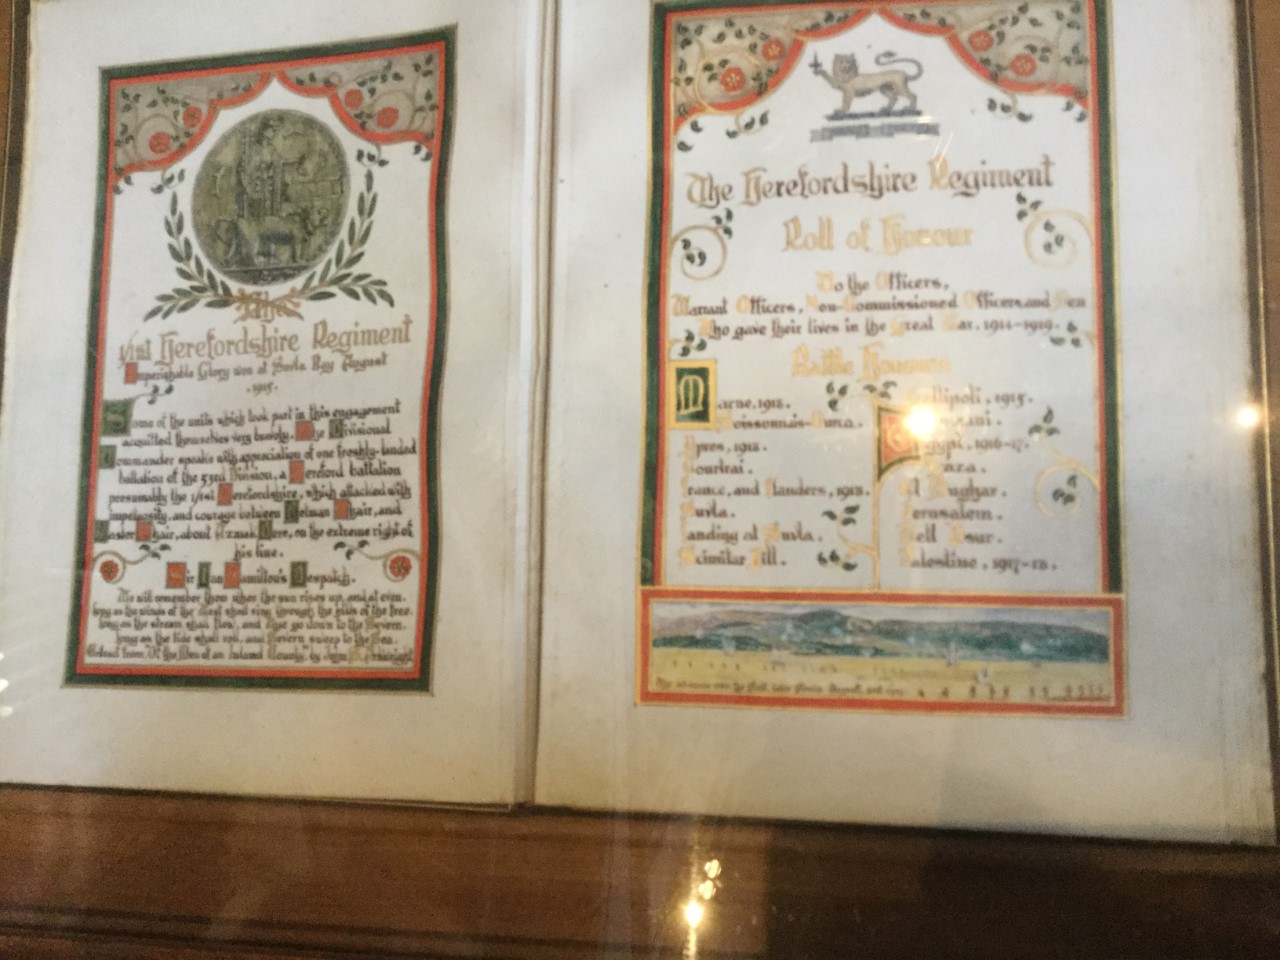 The
1/1st Herefordshire Regiment
Imperishable Glory won at Suvla Bay August
1915.
Some of the units which took part in this engagement
acquitted themselves very bravely. The Divisional
Commander speaks with appreciation of one freshly-landed
battalion of the 53rd Division, a Hereford battalion
presumably the 1/1st Herefordshire, which attacked with
impetuosity, and courage between Hetman Chair, and
Kaslar Chair, about Azmak Dere, on the extreme right of
his line.
Sir Ian Hamilton's Despatch.
We will remember them when the sun rises up, and at even.
Long as the winds of the West shall sing through the hills of the free.
Long as the stream shall flow, and Wye go down to the Severn.
Long as the tide shall roll, and Severn sweep to the Sea.
from "Of the Men of an Inland County" by John
The Herefordshire Regiment
Roll of Honour
To the Officers,
Warrant Officers, Non-Commissioned Officers, and Men
Who gave their lives in the Great War. 1914-1919.
Battle Honours
Marne, 1918.
Soissonnais-Ourcq.
Ypres, 1918.
Courtrai.
France, and Flanders, 1918.
Suvla.
Landing at Suvla.
Scimitar Hill.
Gallipoli, 1915.
Rumani.
Egypt, 1916-17.
Gaza.
El Mughar.
Jerusalem.
Tell Asur.
Palestine, 1917-18.
The advance over the Salt Lake Suvla August, 1915.